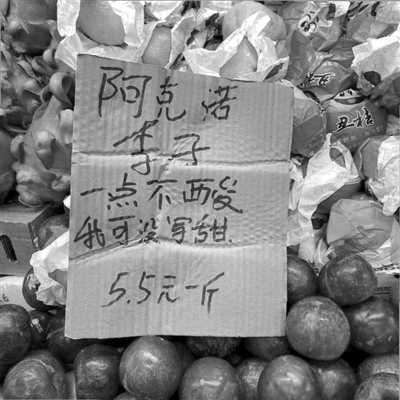 阿克诺
李子
一点不酸
我可没写甜
5.5元一斤
丑桔